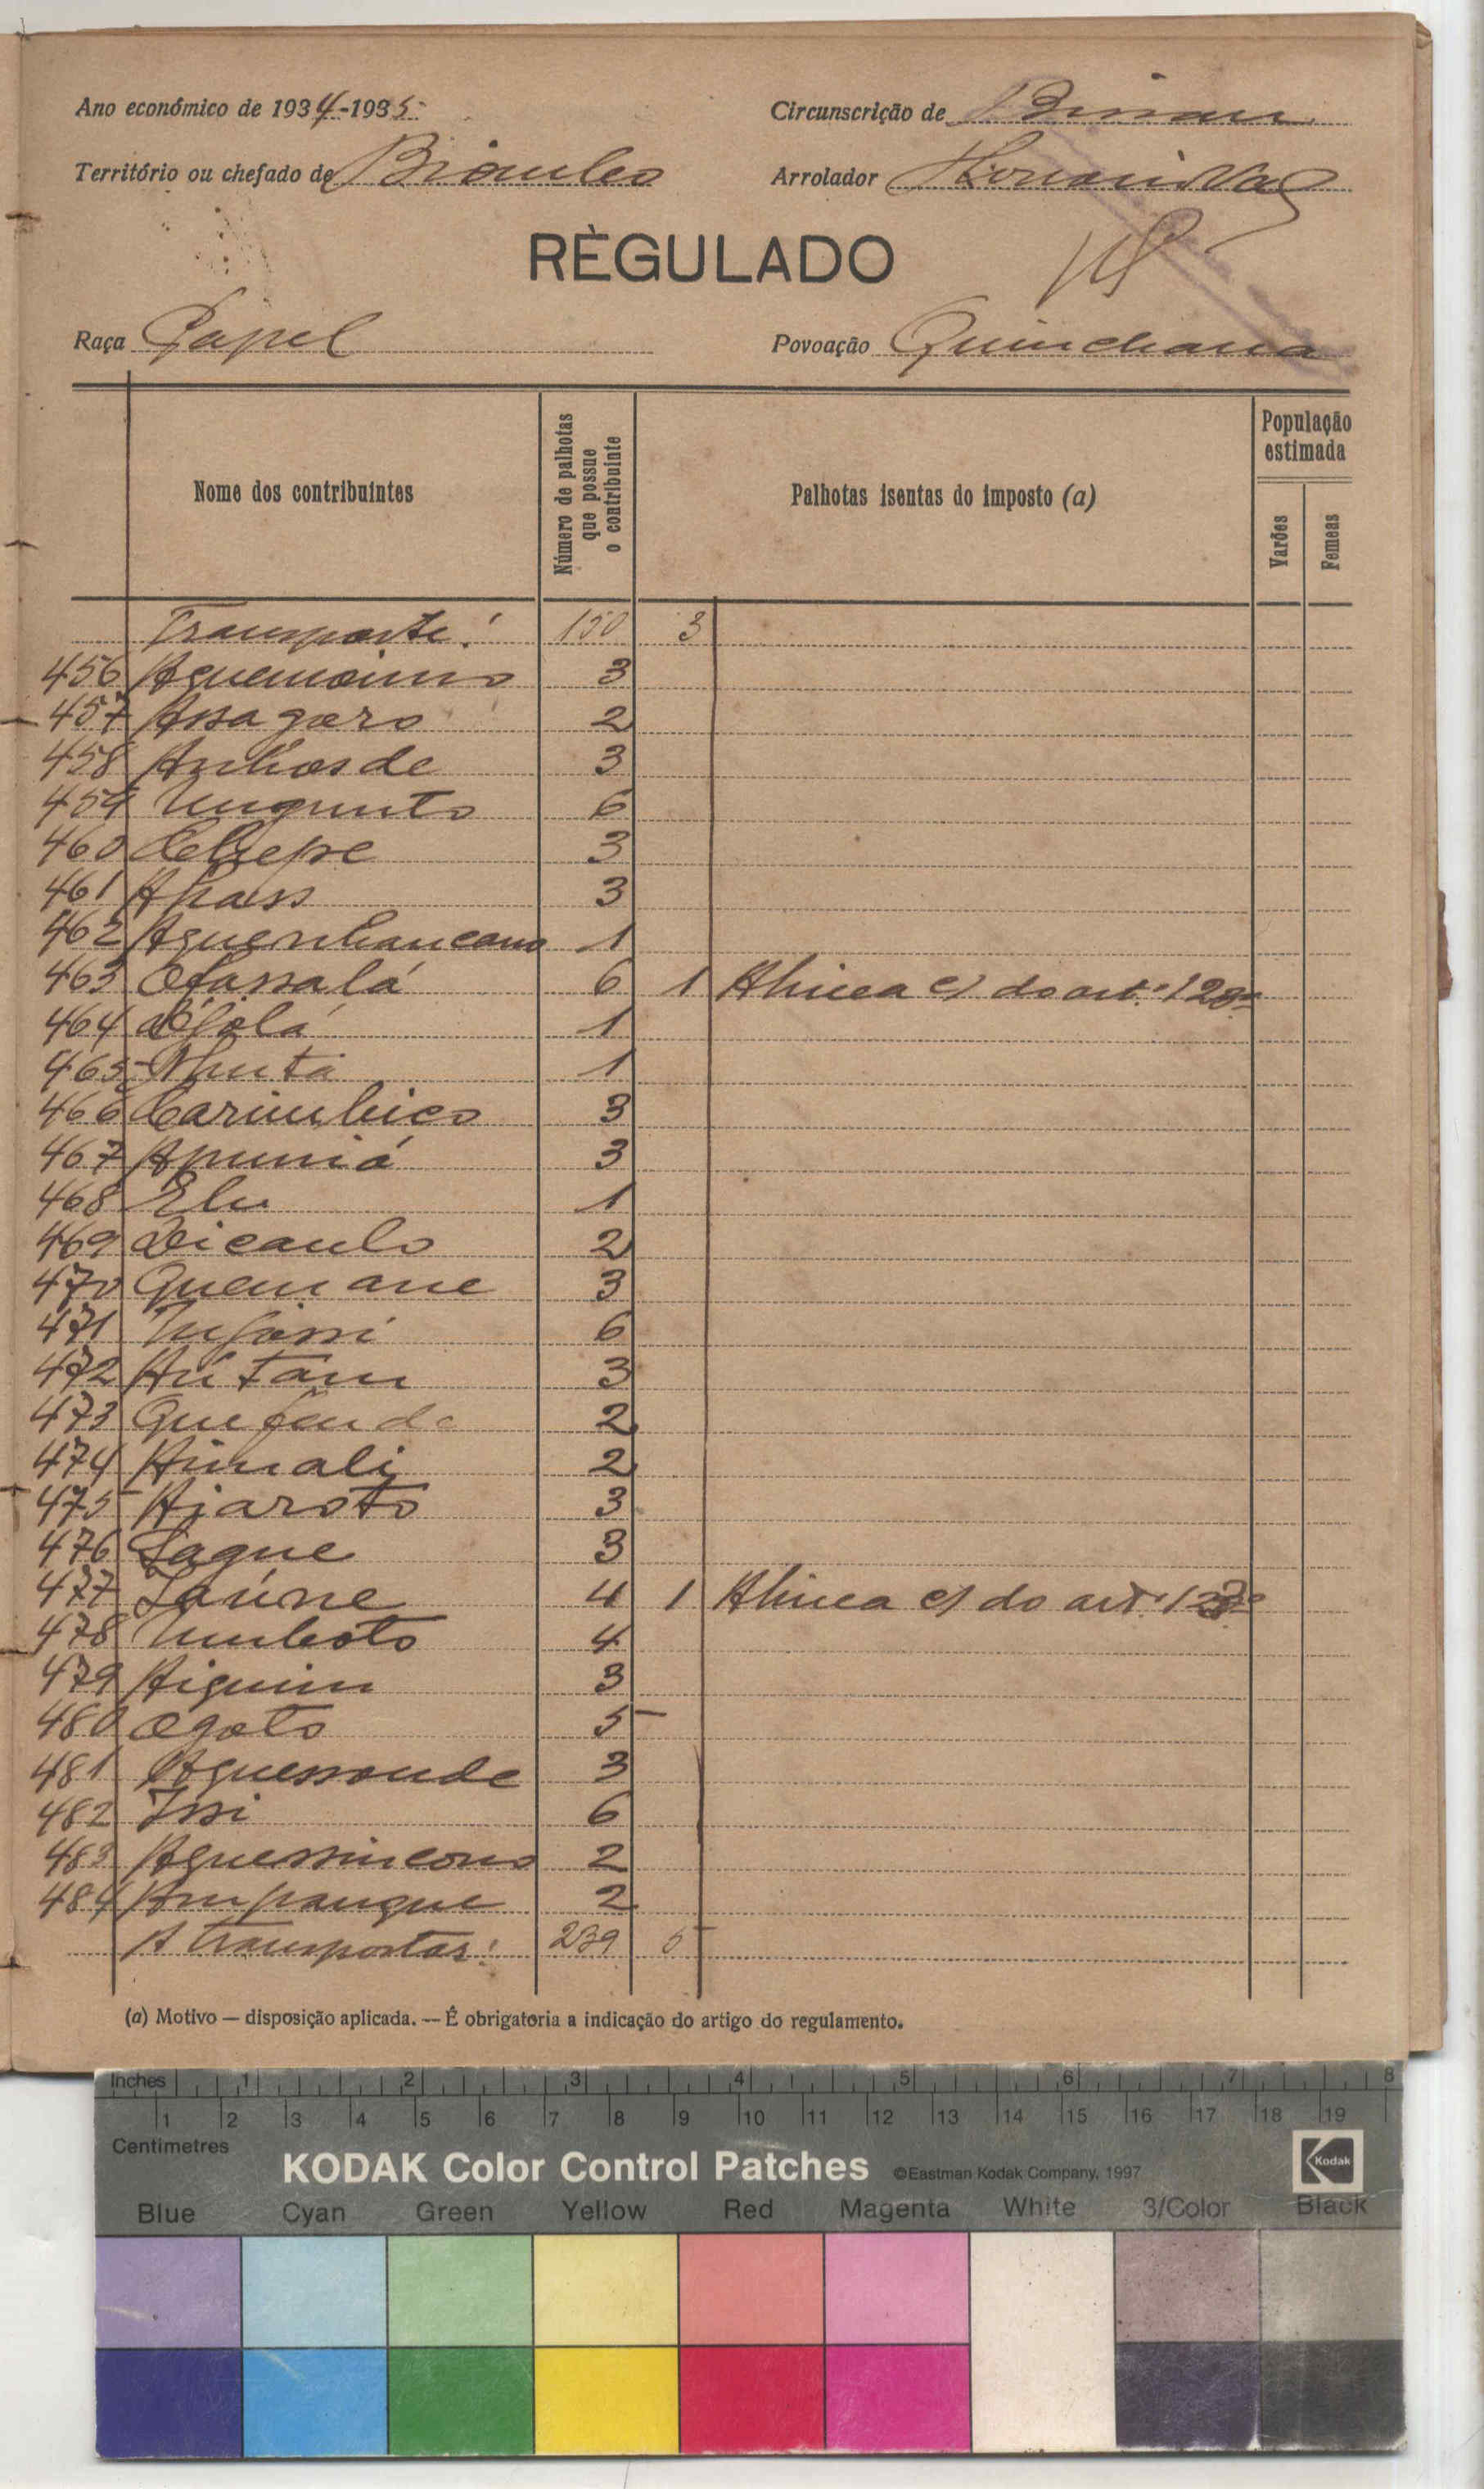 Ano económico de 1934-1935
Circunscrição de Bissau
Território ou chefado de Biombo
Arrolador
RÈGULADO
Raça Papel
Povoação Quinchana
Nome dos contribuintes
Número de palhotas que possue o contribuinte
Palhotas isentas do imposto (a)
População estimada
Varões
Femeas
Transporte! 150 3
456 3
457 Assagaro 2
458 Anhosde 3
459 Ungunto 6
460 3
461 Apass 3
462 1
463 Ofassalá 6 1 Alinea c) do art.º 123º
464 1
465 Nhuta 1
466 Carimbico 3
467 Apuniá 3
468 Elu 1
469 Dicaulo 2
470 Quemane 3
471 6
472 3
473 2
474 2
475 Ajaroto 3
476 Sague 3
477 4 1 Alinea c) do art.º 123º
478 Umboto 4
479 Aiguim 3
480 Ogoto 5
481 Aguessonde 3
482 Issi 6
483 2
484 Ampangue 2
A transportar! 239 5
(a) Motivo — disposição aplicada. — É obrigatoria a indicação do artigo do regulamento.
Inches 1 2 3 4 5 6 7 8
1 2 3 4 5 6 7 8 9 10 11 12 13 14 15 16 17 18 19
Centimetres
KODAK Color Control Patches ©Eastman Kodak Company, 1997 Kodak
Blue Cyan Green Yellow Red Magenta White 3/Color Black